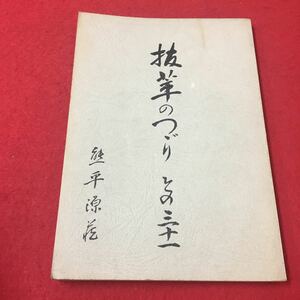 抜萃のつゞり その三十一
熊平源蔵